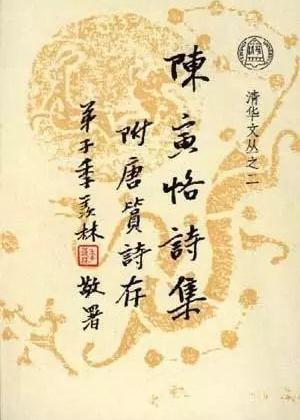 清华文丛之二
陳寅恪詩集
附唐篔詩存
弟子季羨林敬署